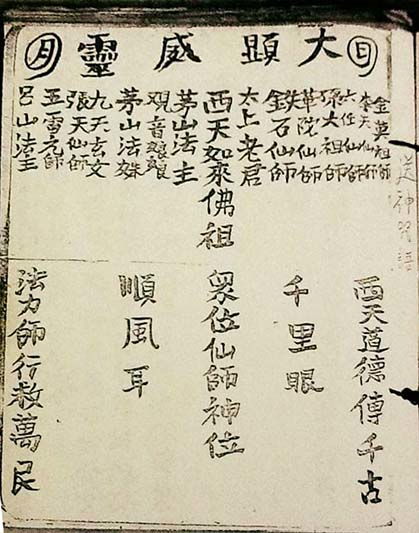 日 大顯威靈 月
金英祖師
李天仙師
六任仙師
孫大祖師
華院仙師
鉄石仙師
太上老君
西天如來佛祖
茅山法主
觀音娘娘
茅山法姝
九天玄女
張天仙師
五雷元師
呂山法主
西天道德傳千古
千里眼
眾位仙師神位
順風耳
法力師行救萬民